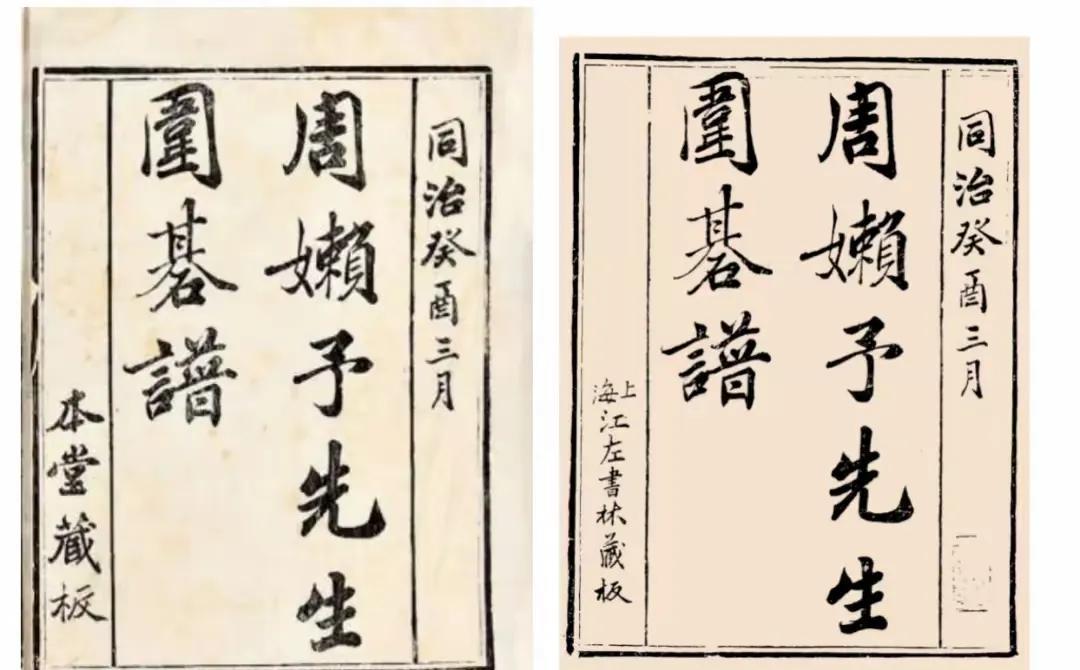 同治癸酉三月
周嬾予先生
圍碁譜
本堂藏板
同治癸酉三月
周嬾予先生
圍碁譜
上海江左書林藏板